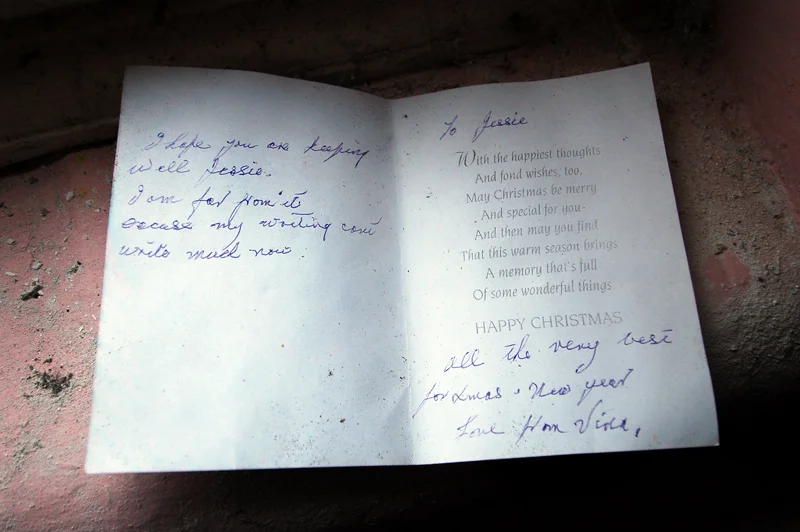 I hope you are keeping
well Jessie.
I am far from it
excuse my writing cant
write much now.
To Jessie
With the happiest thoughts
And fond wishes, too,
May Christmas be merry
And special for you-
And then may you find
That this warm season brings
A memory that's full
Of some wonderful things
HAPPY CHRISTMAS
all the very best
for Xmas & New year
Love from